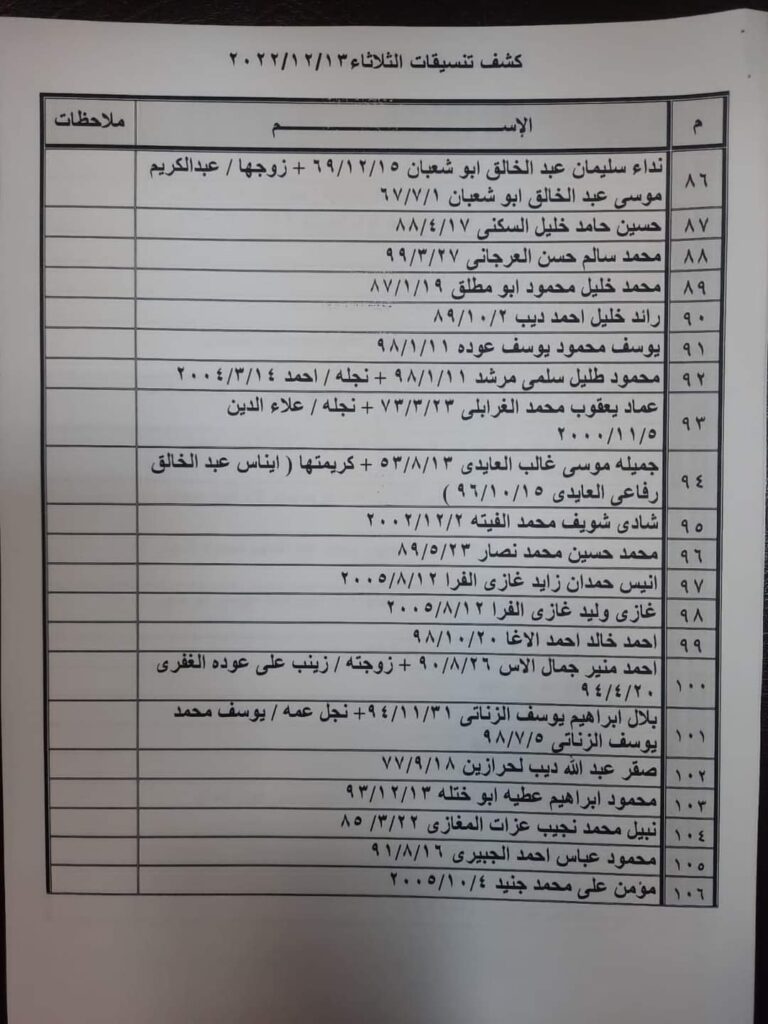 كشف تنسيقات الثلاثاء ٢٠٢٢/١٢/١٣
م الإســـــــم ملاحظات
٨٦ نداء سليمان عبد الخالق ابو شعبان ٦٩/١٢/١٥ + زوجها / عبدالكريم
موسى عبد الخالق ابو شعبان ٦٧/٧/١
٨٧ حسين حامد خليل السكنى ٨٨/٤/١٧
٨٨ محمد سالم حسن العرجانى ٩٩/٣/٢٧
٨٩ محمد خليل محمود ابو مطلق ٨٧/١/١٩
٩٠ رائد خليل احمد ديب ٨٩/١٠/٢
٩١ يوسف محمود يوسف عوده ٩٨/١/١١
٩٢ محمود طليل سلمى مرشد ٩٨/١/١١ + نجله / احمد ٢٠٠٤/٣/١٤
٩٣ عماد يعقوب محمد الغرابلى ٧٣/٣/٢٣ + نجله / علاء الدين
٢٠٠٠/١١/٥
٩٤ جميله موسى غالب العايدى ٥٣/٨/١٣ + كريمتها ( ايناس عبد الخالق
رفاعى العايدى ٩٦/١٠/١٥ )
٩٥ شادى شويف محمد الفيته ٢٠٠٢/١٢/٢
٩٦ محمد حسين محمد نصار ٨٩/٥/٢٣
٩٧ انيس حمدان زايد غازى الفرا ٢٠٠٥/٨/١٢
٩٨ غازى وليد غازى الفرا ٢٠٠٥/٨/١٢
٩٩ احمد خالد احمد الاغا ٩٨/١٠/٢٠
١٠٠ احمد منير جمال الاس ٩٠/٨/٢٦ + زوجته / زينب على عوده الغفرى
٩٤/٤/٢٠
١٠١ بلال ابراهيم يوسف الزناتى ٩٤/١١/٣١+ نجل عمه / يوسف محمد
يوسف الزناتى ٩٨/٧/٥
١٠٢ صقر عبد الله ديب لحرازين ٧٧/٩/١٨
١٠٣ محمود ابراهيم عطيه ابو ختله ٩٣/١٢/١٣
١٠٤ نبيل محمد نجيب عزات المغازى ٨٥ /٣/٢٢
١٠٥ محمود عباس احمد الجبيرى ٩١/٨/١٦
١٠٦ مؤمن على محمد جنيد ٢٠٠٥/١٠/٤